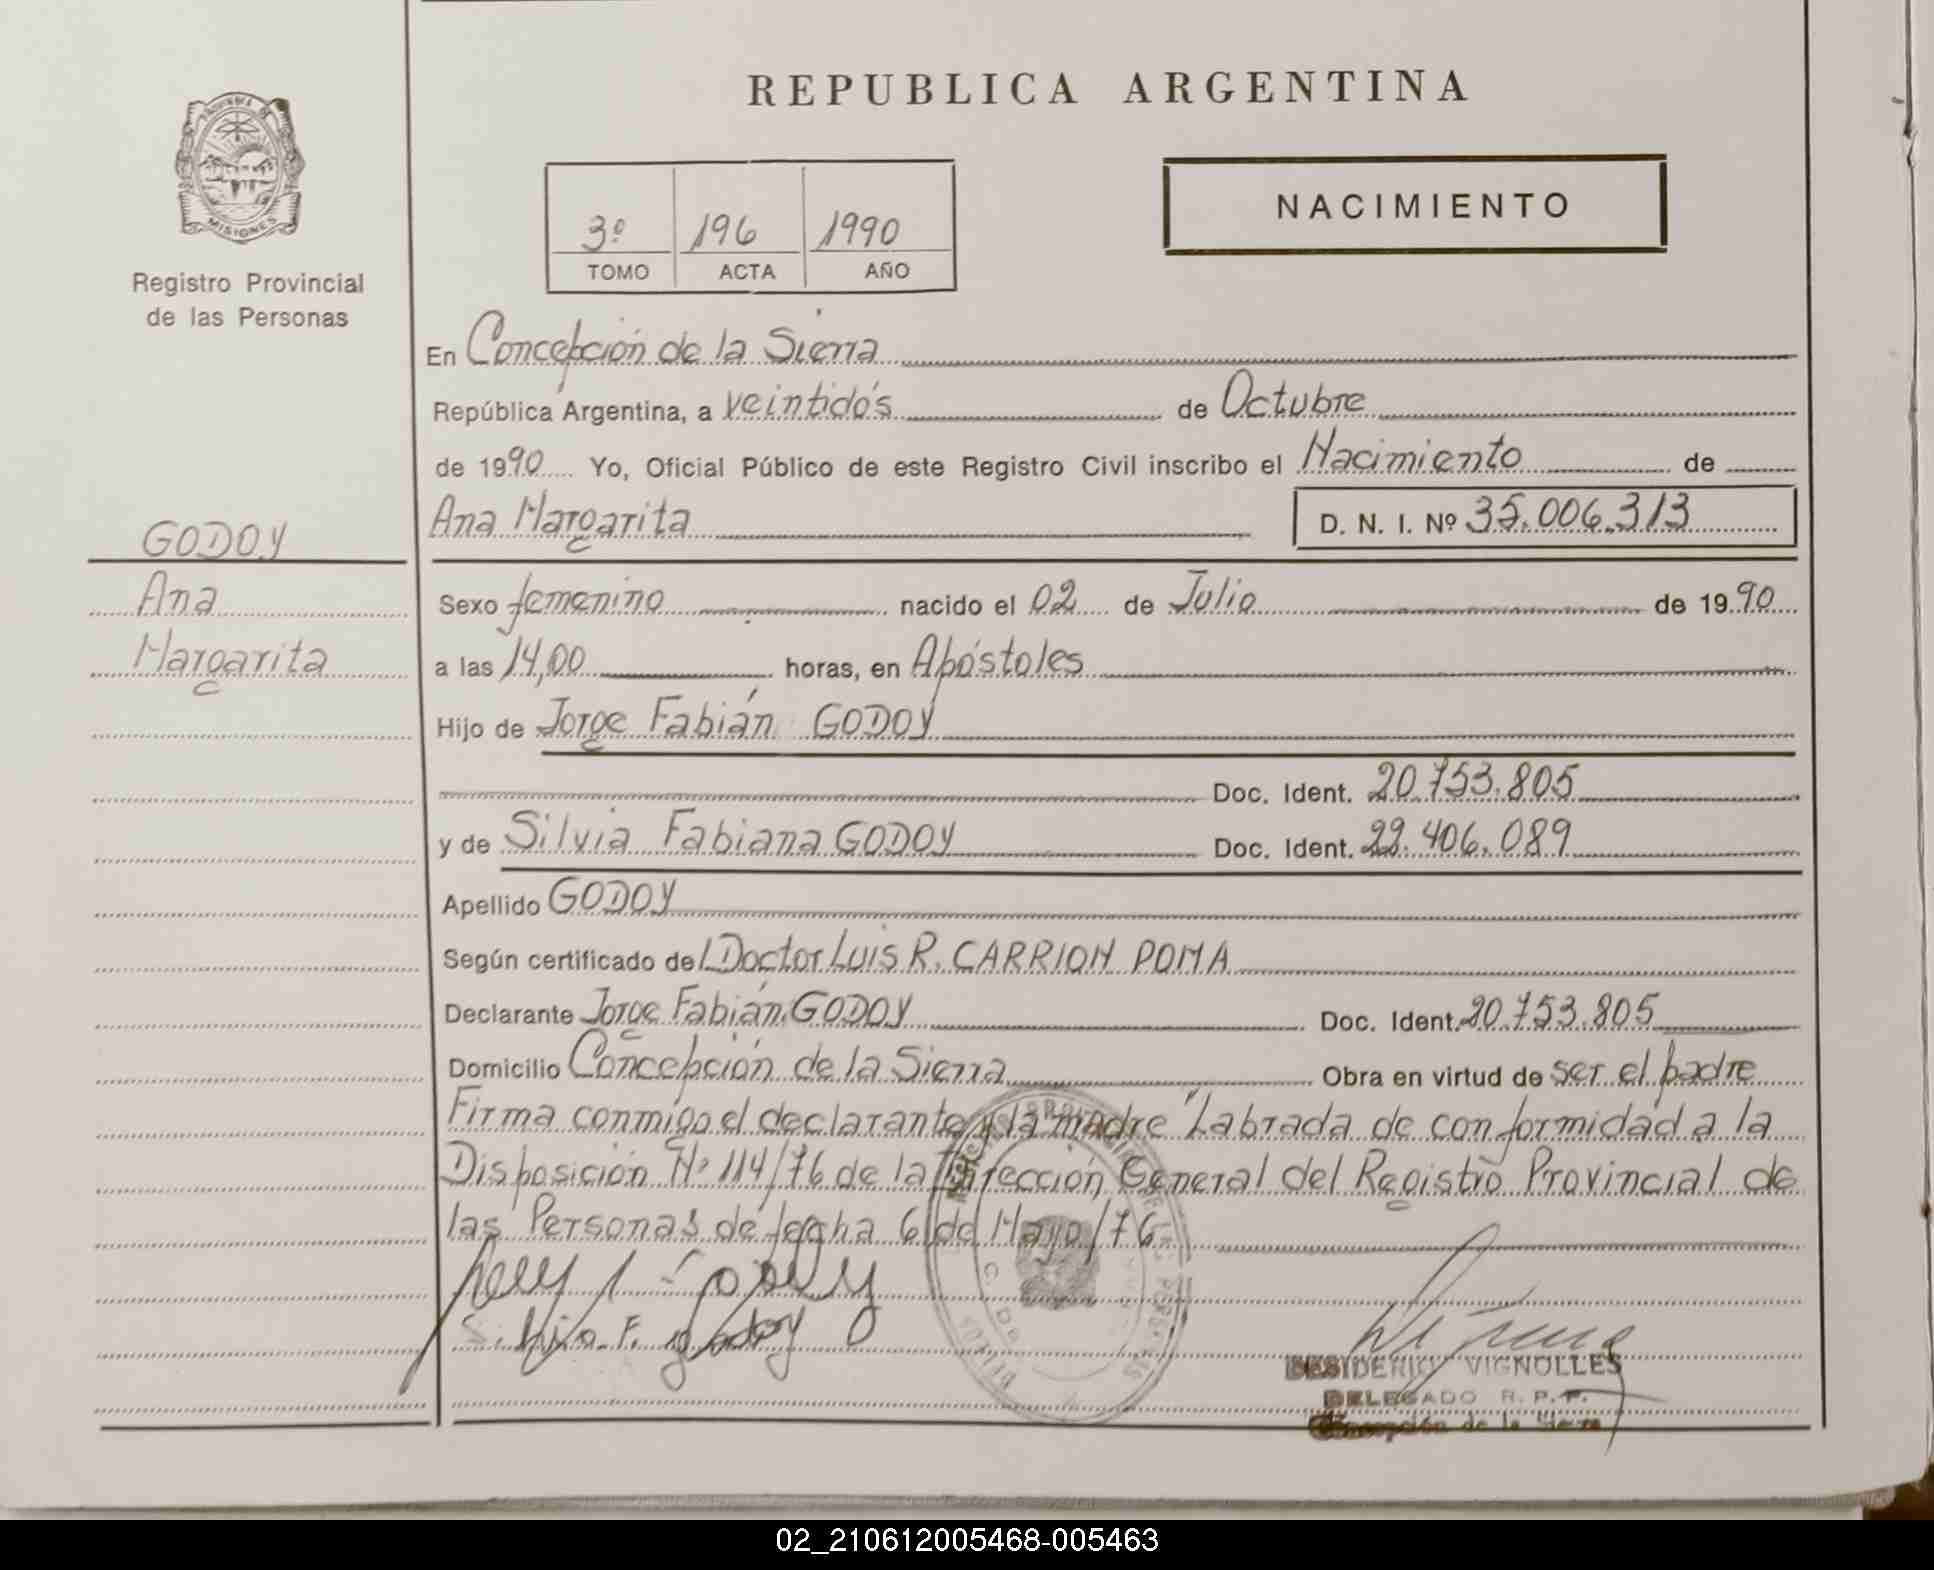 REPUBLICA ARGENTINA
PROVINCIA DE
MISIONES
Registro Provincial
de las Personas
3º 196 1990
TOMO ACTA AÑO
NACIMIENTO
En Concepción de la Sierra
República Argentina, a veintidós de Octubre
de 1990 Yo, Oficial Público de este Registro Civil inscribo el Nacimiento de
Ana Margarita D. N. I. Nº 35.006.313
GODOY
Ana
Margarita
Sexo femenino nacido el 02 de Julio de 1990
a las 14,00 horas, en Apóstoles
Hijo de Jorge Fabián GODOY
Doc. Ident. 20.753.805
y de Silvia Fabiana GODOY Doc. Ident. 22.406.089
Apellido GODOY
Según certificado del Doctor Luis R. CARRION POMA
Declarante Jorge Fabián GODOY Doc. Ident. 20.753.805
Domicilio Concepción de la Sierra Obra en virtud de ser el padre
Firma conmigo el declarante y la madre Labrada de conformidad a la
Disposición Nº 114/76 de la Dirección General del Registro Provincial de
las Personas de fecha 6 de Mayo/76
Silvia F. godoy
DESIDERIO VIGNOLLES
DELEGADO R. P. P.
Concepción de la Sierra
02_210612005468-005463